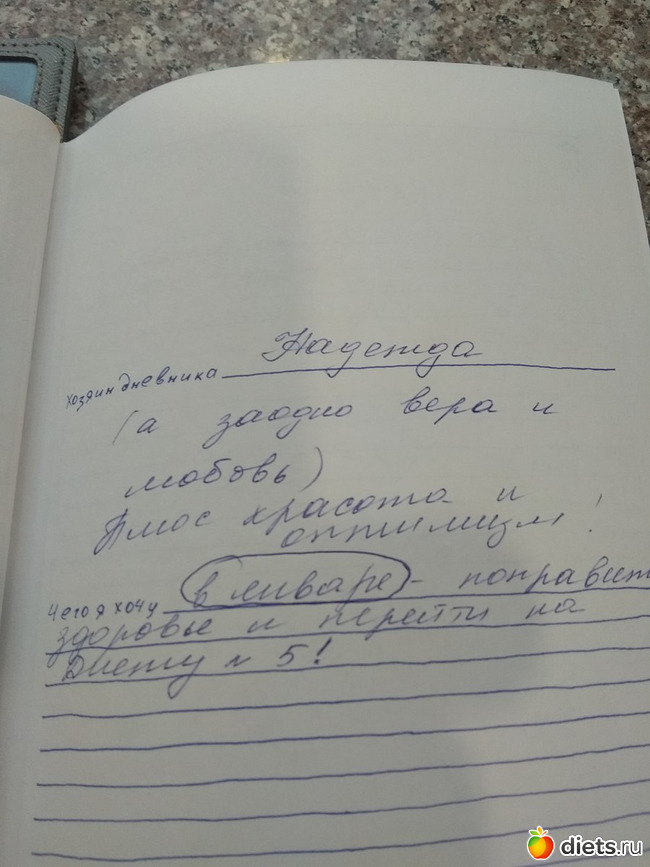 хозяин дневника Надежда
(а заодно вера и
любовь)
Плюс красота и
оптимизм!
Чего я хочу в январе - поправит
здоровье и перейти на
Диету № 5!
diets.ru